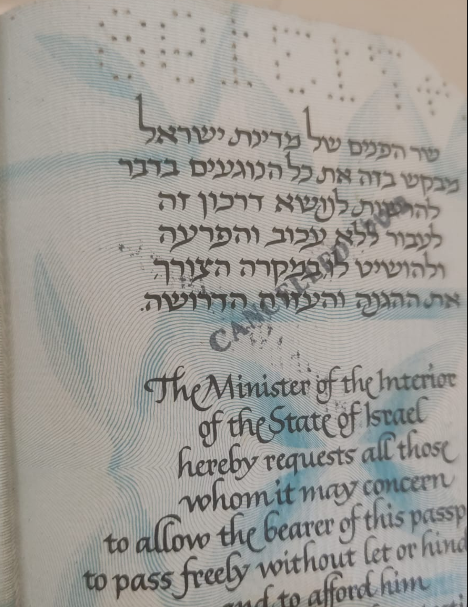 שר הפנים של מדינת ישראל
מבקש בזה את כל הנוגעים בדבר
להרשות לנושא דרכון זה
לעבור ללא עכוב והפרעה
ולהושיט לו במקרה הצורך
את ההגנה והעזרה הדרושה.
CANCELLED
The Minister of the Interior
of the State of Israel
hereby requests all those
whom it may concern
to allow the bearer of this passp
to pass freely without let or hind
and to afford him